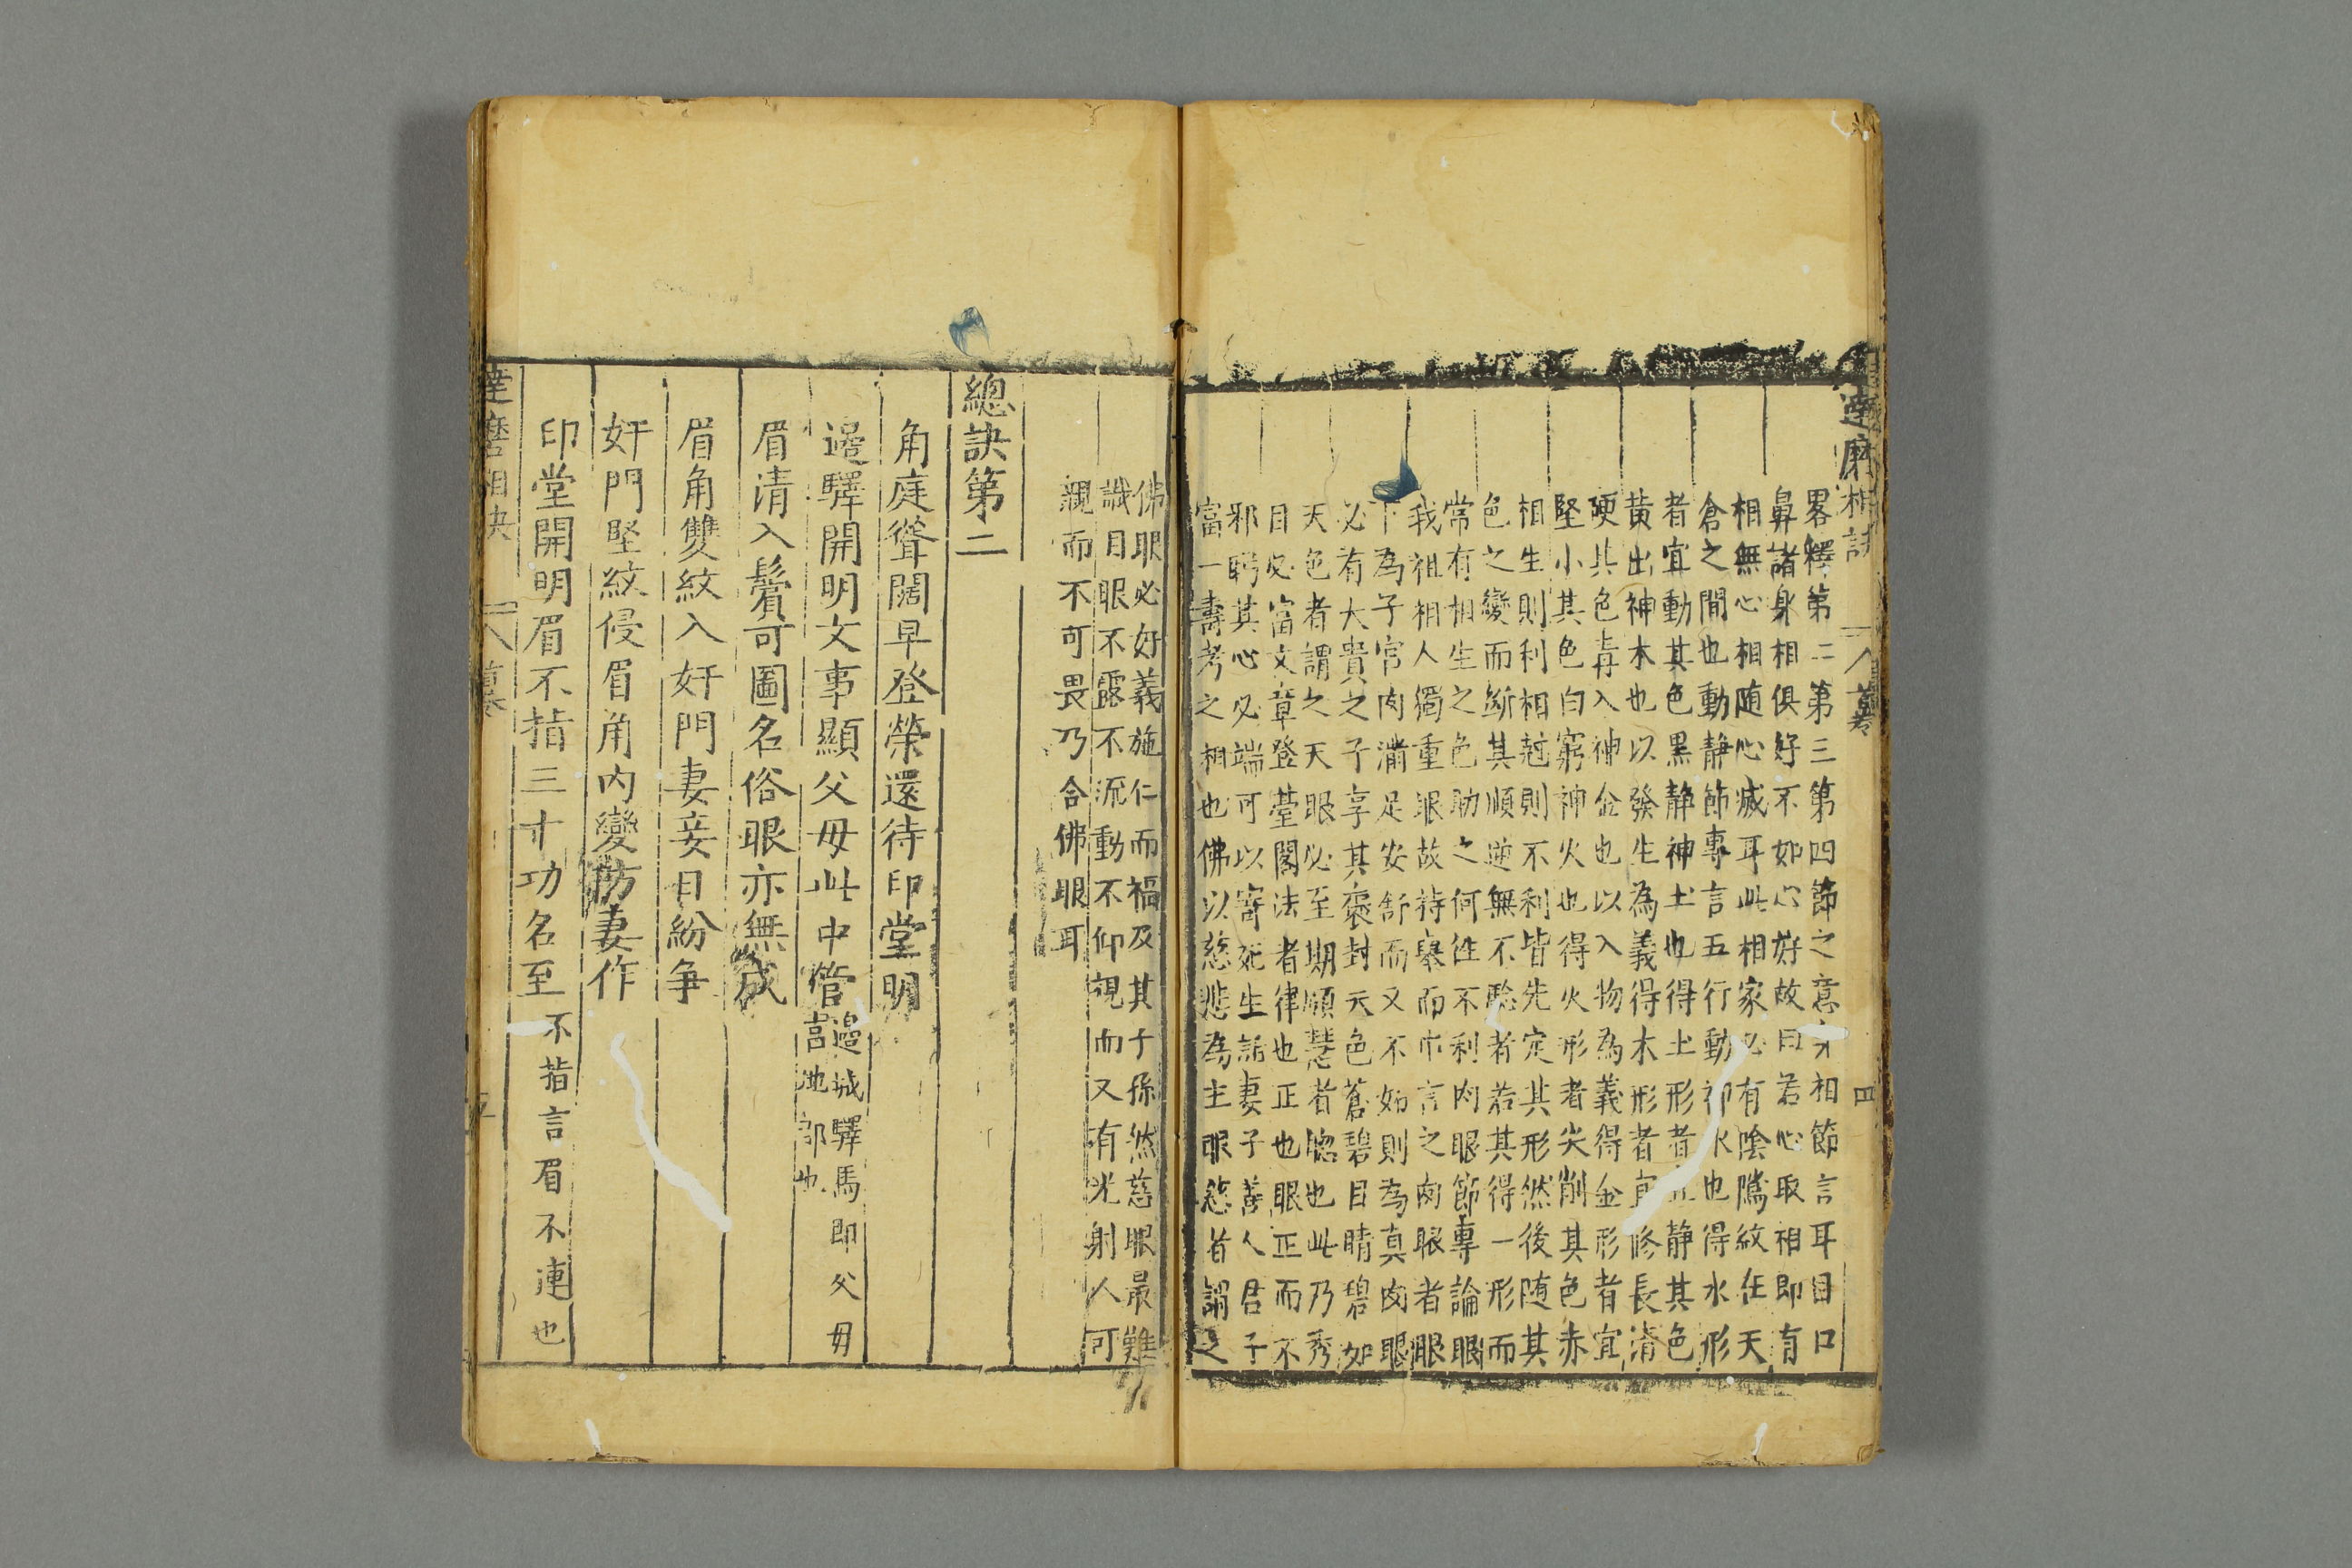 達磨相訣
首卷
四
畧釋第二第三第四節之意分相節言耳目口
鼻諸身相俱好不如心好故曰若心取相即有
相無心相随心滅耳此相家必有陰隲紋在天
倉之間也動静節專言五行動神水也得水形
者宜動其色黒静神土也得土形者宜静其色
黄出神木也以發生為義得木形者宜修長清
硬其色青入神金也以入物為義得金形者宜
堅小其色白窮神火也得火形者尖削其色赤
相生則利相尅則不利皆先定其形然後随其
色之變而斷其順逆無不驗者若其得一形而
常有相生之色助之何徃不利肉眼節專論眼
我祖相人獨重眼故待舉而申言之肉眼者眼
下為子宫肉滿足安舒而又不妬則為真肉眼
必有大貴之子享其褒封天色蒼碧目睛碧如
天色者謂之天眼必至期頤慧者聰也此乃秀
目必富文章登臺閣法者律也正也眼正而不
邪眄其心必端可以寄死生託妻子善人君子
富一壽考之相也佛以慈悲為主眼慈者謂之
佛眼必好義施仁而福及其子孫然慈眼最難
識目眼不露不流動不仰視而又有光射人可
親而不可畏乃合佛眼耳
總訣第二
角庭聳闊早登榮還待印堂明
邉驛開明文事顯父母此中管邉城驛馬即父母
宫地部也
眉清入鬢可圖名俗眼亦無成
眉角雙紋入奸門妻妾日紛争
奸門堅紋侵眉角内變防妻作
印堂開明眉不指三十功名至不指言眉不連也
達磨相决
首卷
五